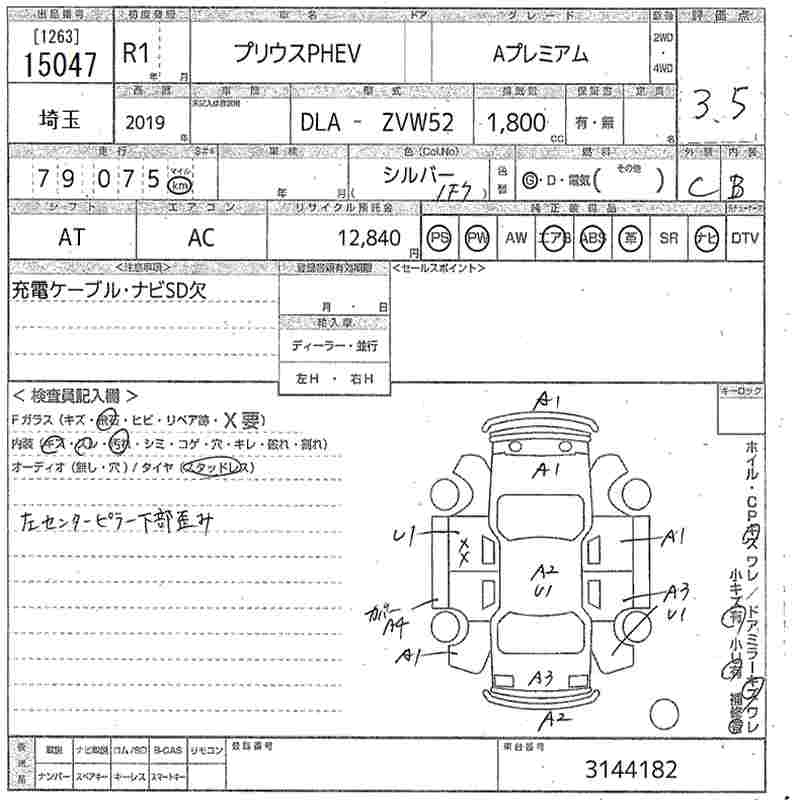 出品番号 初度登録 車 名 ドア グレード 駆動 評 価 点
[1263]
15047 R1 年 月 プリウスPHEV Aプレミアム 2WD・4WD 3.5
車 歴 型 式 排気量 保証書 定員
埼玉 2019 年 DLA - ZVW52 1,800 cc 有・無 名
走 行 車 検 色(Col.No) 色替 燃 料 外 装 内 装
79075 マイル km 年 月( シルバー 1F7 ) G・D・電気( その他 ) C B
シフト エアコン リサイクル預託金 純 正 装 備 品
AT AC 12,840円 PS PW AW エアB ABS 革 SR ナビ DTV
<注意事項> <セールスポイント>
充電ケーブル・ナビSD欠
月・日
輸入車
ディーラー・並行
左H・右H
<検査員記入欄> キーロック
Fガラス(キズ・飛石・ヒビ・リペア跡・X要)
内装(キズ・スレ・汚れ・シミ・コゲ・穴・キレ・破れ・割れ)
オーディオ(無し・穴)/タイヤ(スタッドレス)
左センターピラー下部歪み
A1
A1
U1 XX A1
A2
U1
カバー
A4
A3
U1
A1
A3
A2
ホイル・CPキズ ワレ/ドアミラーキズ ワレ
小キズ有 小U有 補修
後送品 取説 ナビ取説 ロム/SD B-CAS リモコン 登録番号 車台番号
ナンバー スペアキー キーレス スマートキー 3144182